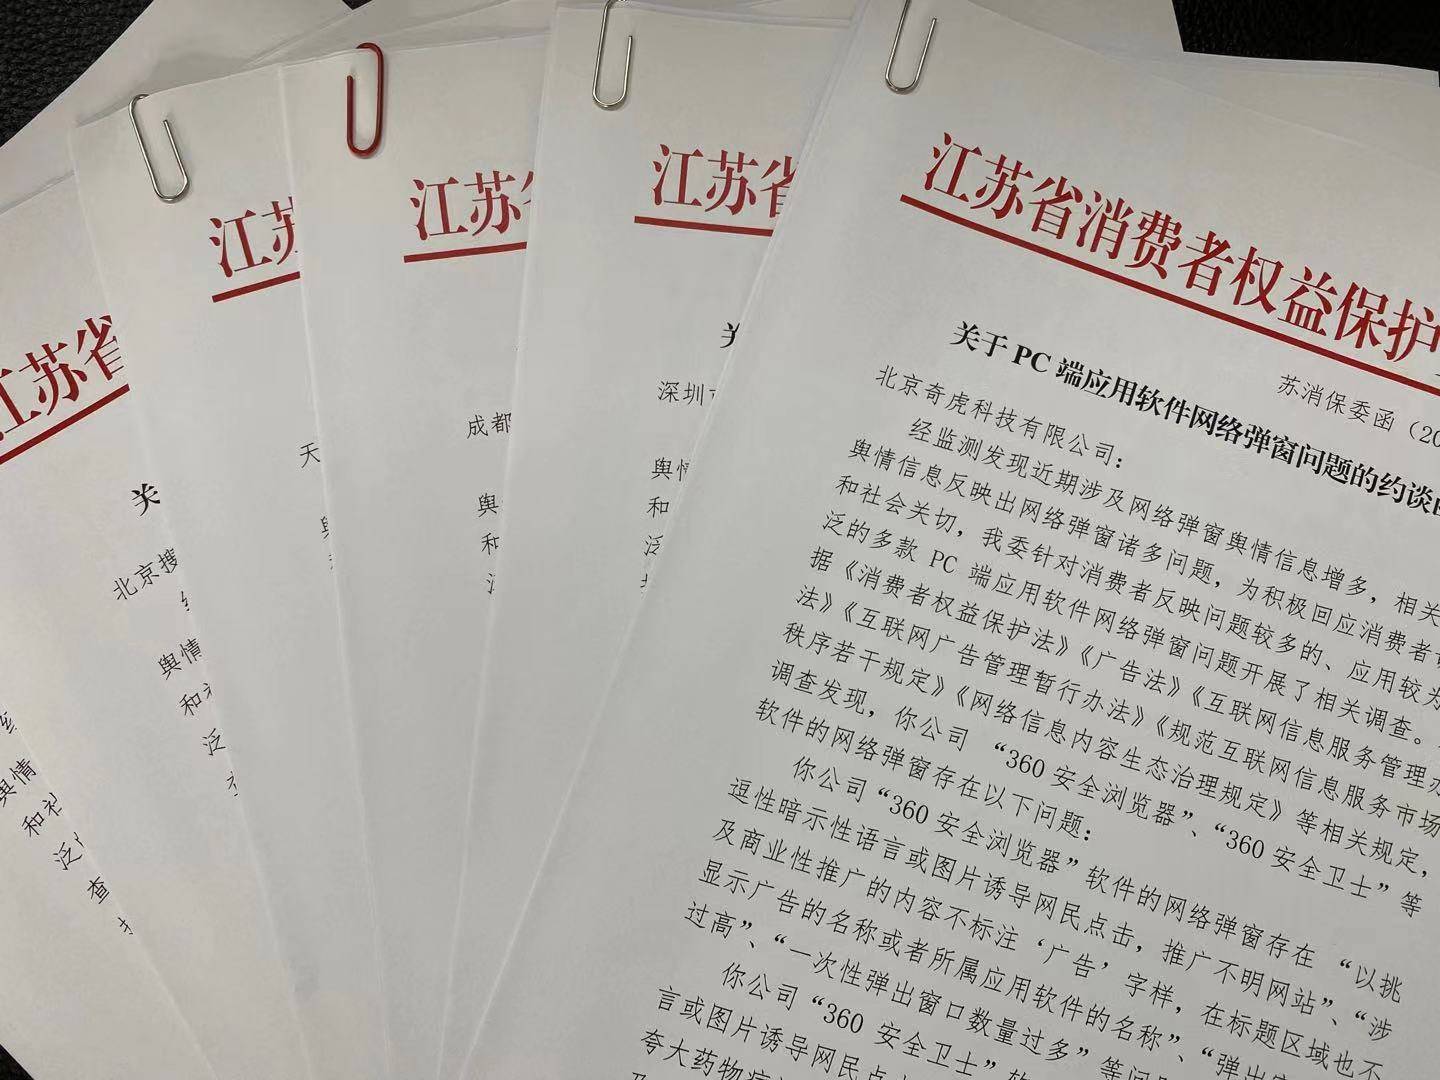 江苏省
舆情
和社
泛
查
江苏
关
北京搜
舆情
和社
泛
江苏
天
江苏
成都
舆
和
江苏省
深圳市
舆情
和
泛
江苏省消费者权益保护
苏消保委函（20
关于 PC 端应用软件网络弹窗问题的约谈
北京奇虎科技有限公司：
经监测发现近期涉及网络弹窗舆情信息增多，相关
舆情信息反映出网络弹窗诸多问题，为积极回应消费者
和社会关切，我委针对消费者反映问题较多的、应用较为
泛的多款 PC 端应用软件网络弹窗问题开展了相关调查。
据《消费者权益保护法》《广告法》《互联网信息服务管理办
法》《互联网广告管理暂行办法》《规范互联网信息服务市场
秩序若干规定》《网络信息内容生态治理规定》等相关规定，
调查发现，你公司 “360 安全浏览器”、“360 安全卫士” 等
软件的网络弹窗存在以下问题：
你公司“360 安全浏览器” 软件的网络弹窗存在 “以挑
逗性暗示性语言或图片诱导网民点击，推广不明网站”、“涉
及商业性推广的内容不标注 ‘广告’ 字样，在标题区域也不
显示广告的名称或者所属应用软件的名称”、“弹出窗
过高”、“一次性弹出窗口数量过多” 等问
你公司 “360 安全卫士” 软
言或图片诱导网民点
夸大药物